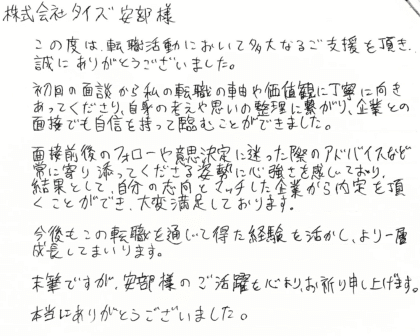 株式会社タイズ 安部様
この度は、転職活動において多大なるご支援を頂き、
誠にありがとうございました。
初回の面談から私の転職の軸や価値観に丁寧に向き
あってくださり、自身の考えや思いの整理に繋がり、企業との
面接でも自信を持って臨むことができました。
面接前後のフォローや意思決定に迷った際のアドバイスなど
常に寄り添ってくださる姿勢に心強さを感じており、
結果として、自分の志向とマッチした企業から内定を頂
くことができ、大変満足しております。
今後もこの転職を通じて得た経験を活かし、より一層
成長してまいります。
末筆ですが、安部様のご活躍を心よりお祈り申し上げます。
本当にありがとうございました。